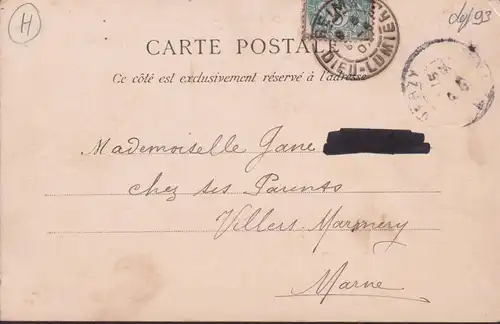 H
dep/93
CARTE POSTALE
Ce côté est exclusivement réservé à l'adresse
REIMS
DIEU-LUMIÈRE
VERZY
Mademoiselle Jane
chez ses Parents
Villers Marmery
Marne